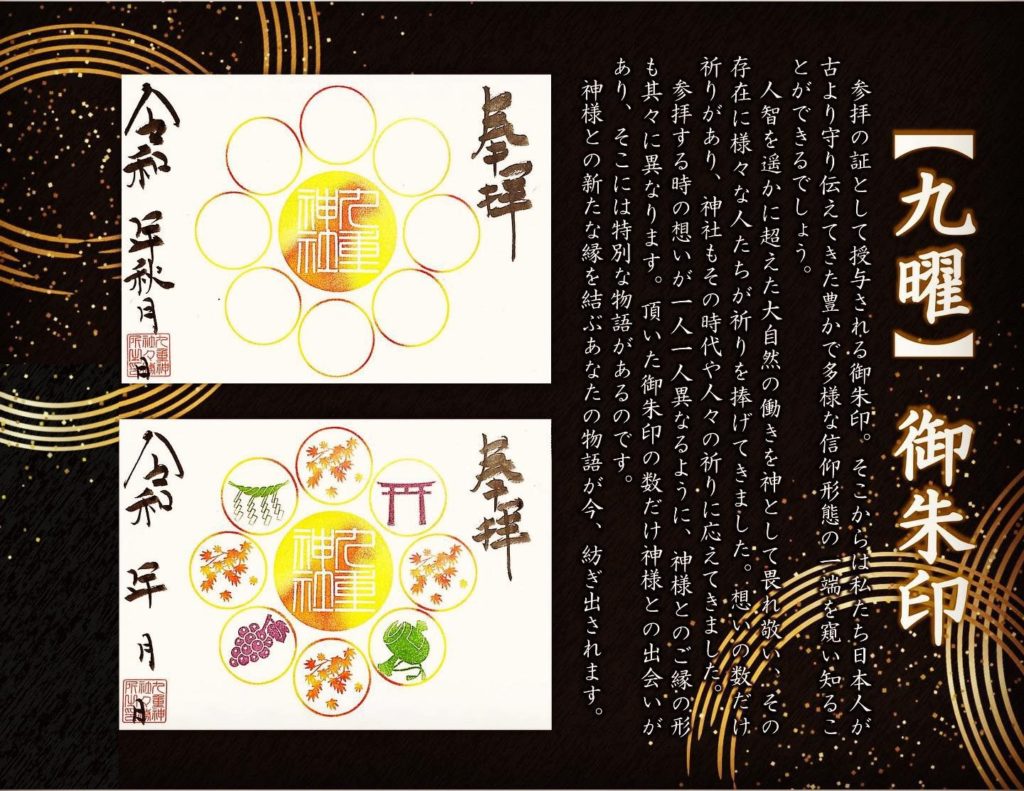 【九曜】御朱印
参拝の証として授与される御朱印。そこからは私たち日本人が
古より守り伝えてきた豊かで多様な信仰形態の一端を窺い知るこ
とができるでしょう。
人智を遥かに超えた大自然の働きを神として畏れ敬い、その
存在に様々な人たちが祈りを捧げてきました。想いの数だけ
祈りがあり、神社もその時代や人々の祈りに応えてきました。
参拝する時の想いが一人一人異なるように、神様とのご縁の形
も其々に異なります。頂いた御朱印の数だけ神様との出会いが
あり、そこには特別な物語があるのです。
神様との新たな縁を結ぶあなたの物語が今、紡ぎ出されます。
奉拝
九重
神社
令和 年秋月 日
九重神
社々務
所之印
奉拝
九重
神社
令和 年 月 日
九重神
社々務
所之印